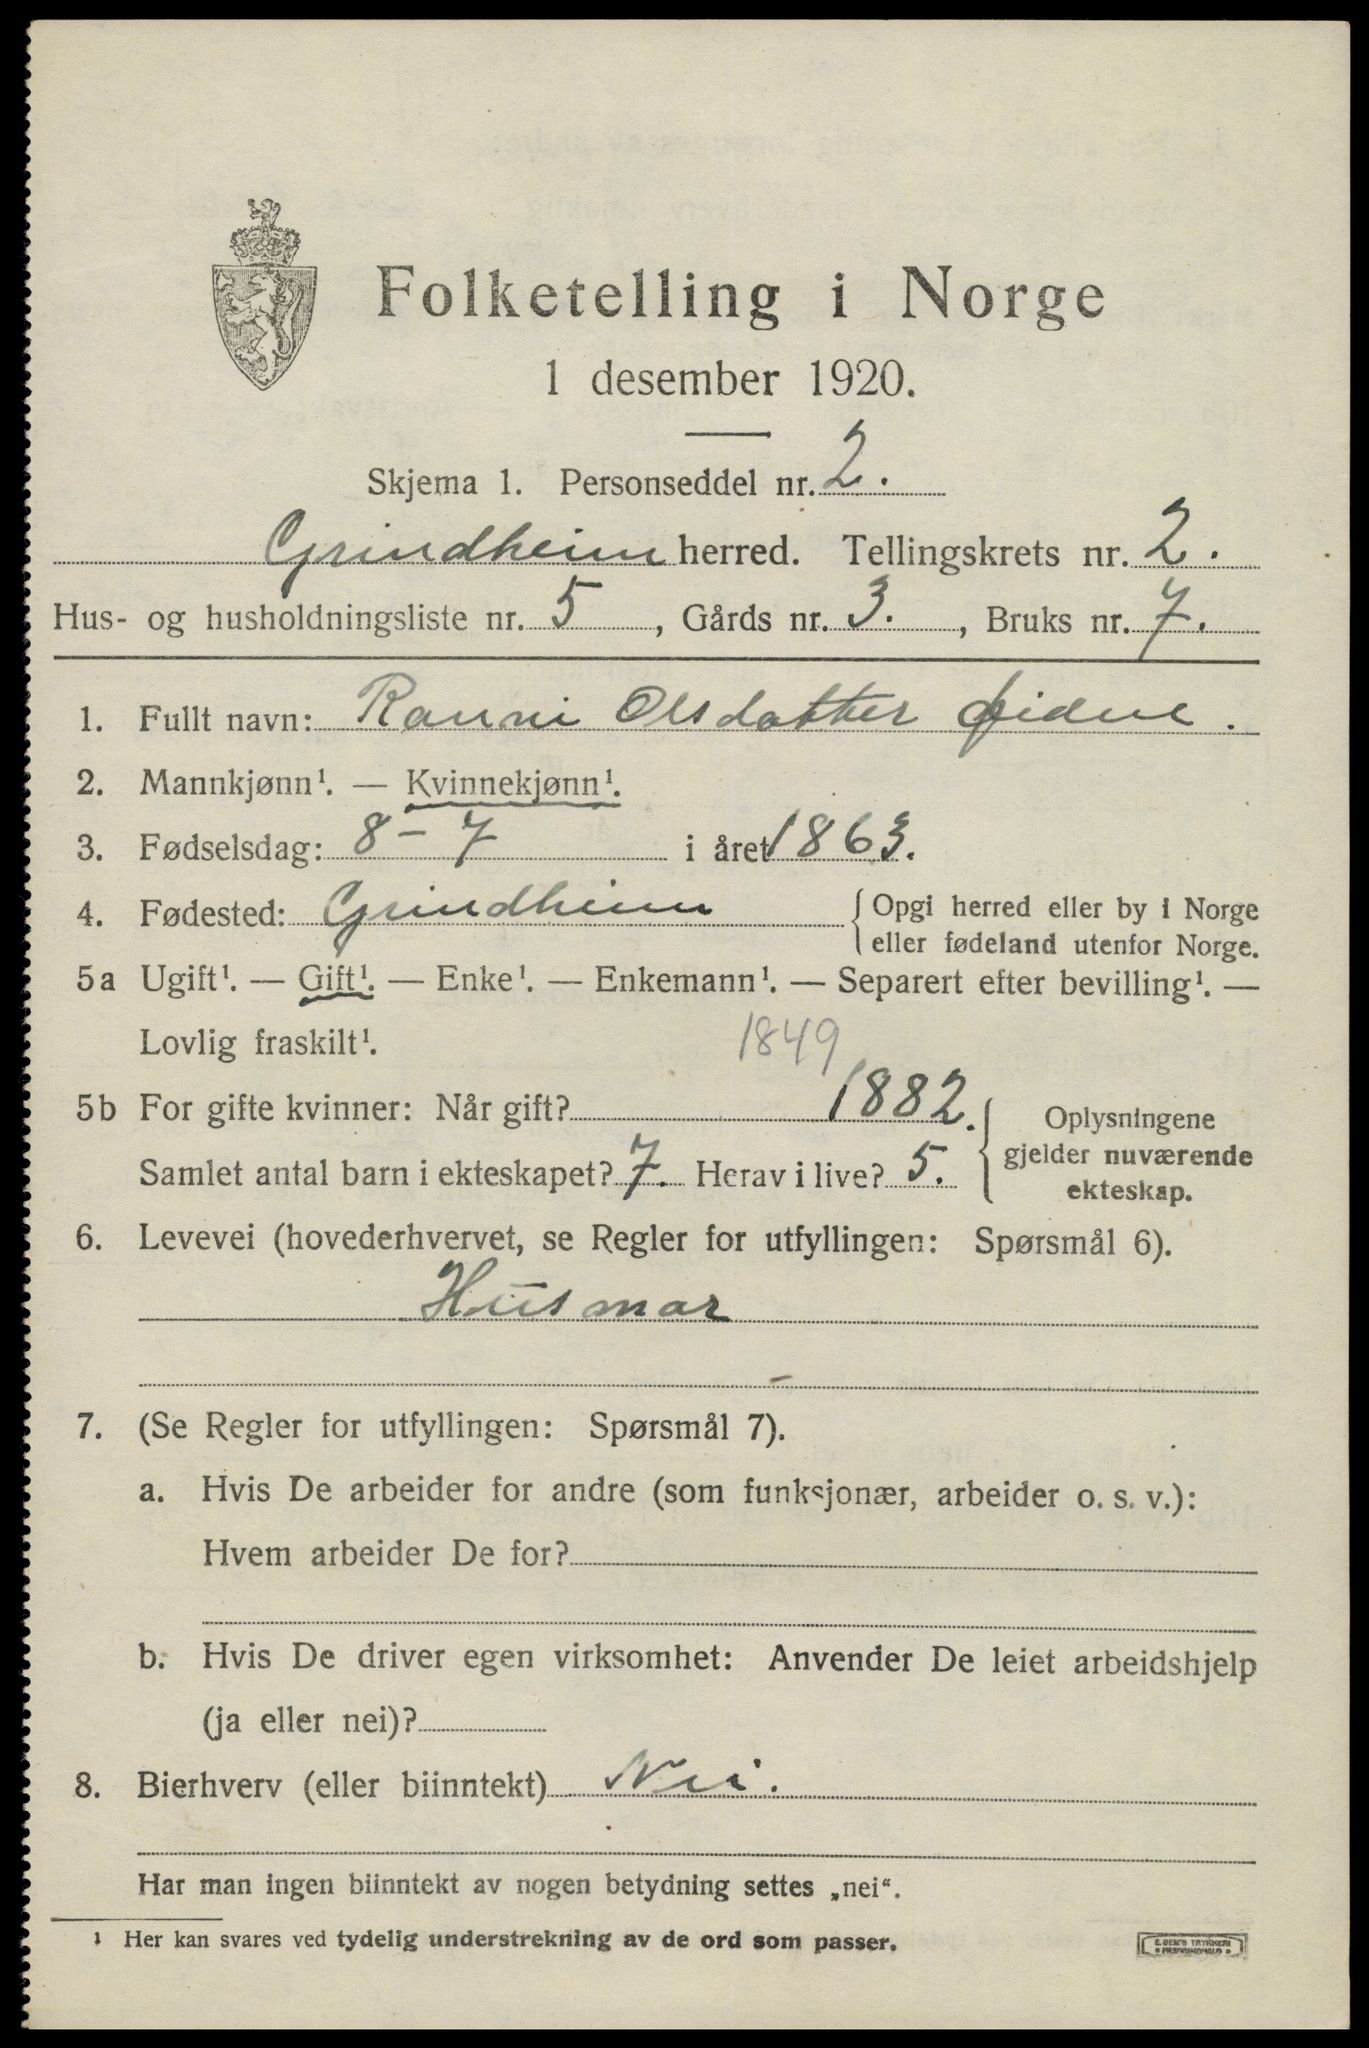 Folketelling i Norge
1 desember 1920.
Skjema 1. Personseddel nr. 2.
Grindheim herred. Tellingskrets nr. 2.
Hus- og husholdningsliste nr. 5, Gårds nr. 3., Bruks nr. 7.
1. Fullt navn: Ranni Olsdatter
2. Mannkjønn¹. — Kvinnekjønn¹.
3. Fødselsdag: 8-7 i året 1863.
4. Fødested: Grindheim { Opgi herred eller by i Norge
eller fødeland utenfor Norge.
5a Ugift¹. — Gift¹. — Enke¹. — Enkemann¹. — Separert efter bevilling¹. —
Lovlig fraskilt¹.
1849
5b For gifte kvinner: Når gift? 1882.
Samlet antal barn i ekteskapet? 7. Herav i live? 5.
{ Oplysningene
gjelder nuværende
ekteskap.
6. Levevei (hovederhvervet, se Regler for utfyllingen: Spørsmål 6).
Husmor
7. (Se Regler for utfyllingen: Spørsmål 7).
a. Hvis De arbeider for andre (som funksjonær, arbeider o. s. v.):
Hvem arbeider De for?
b. Hvis De driver egen virksomhet: Anvender De leiet arbeidshjelp
(ja eller nei)?
8. Bierhverv (eller biinntekt) Nei.
Har man ingen biinntekt av nogen betydning settes „nei“.
¹ Her kan svares ved tydelig understrekning av de ord som passer.